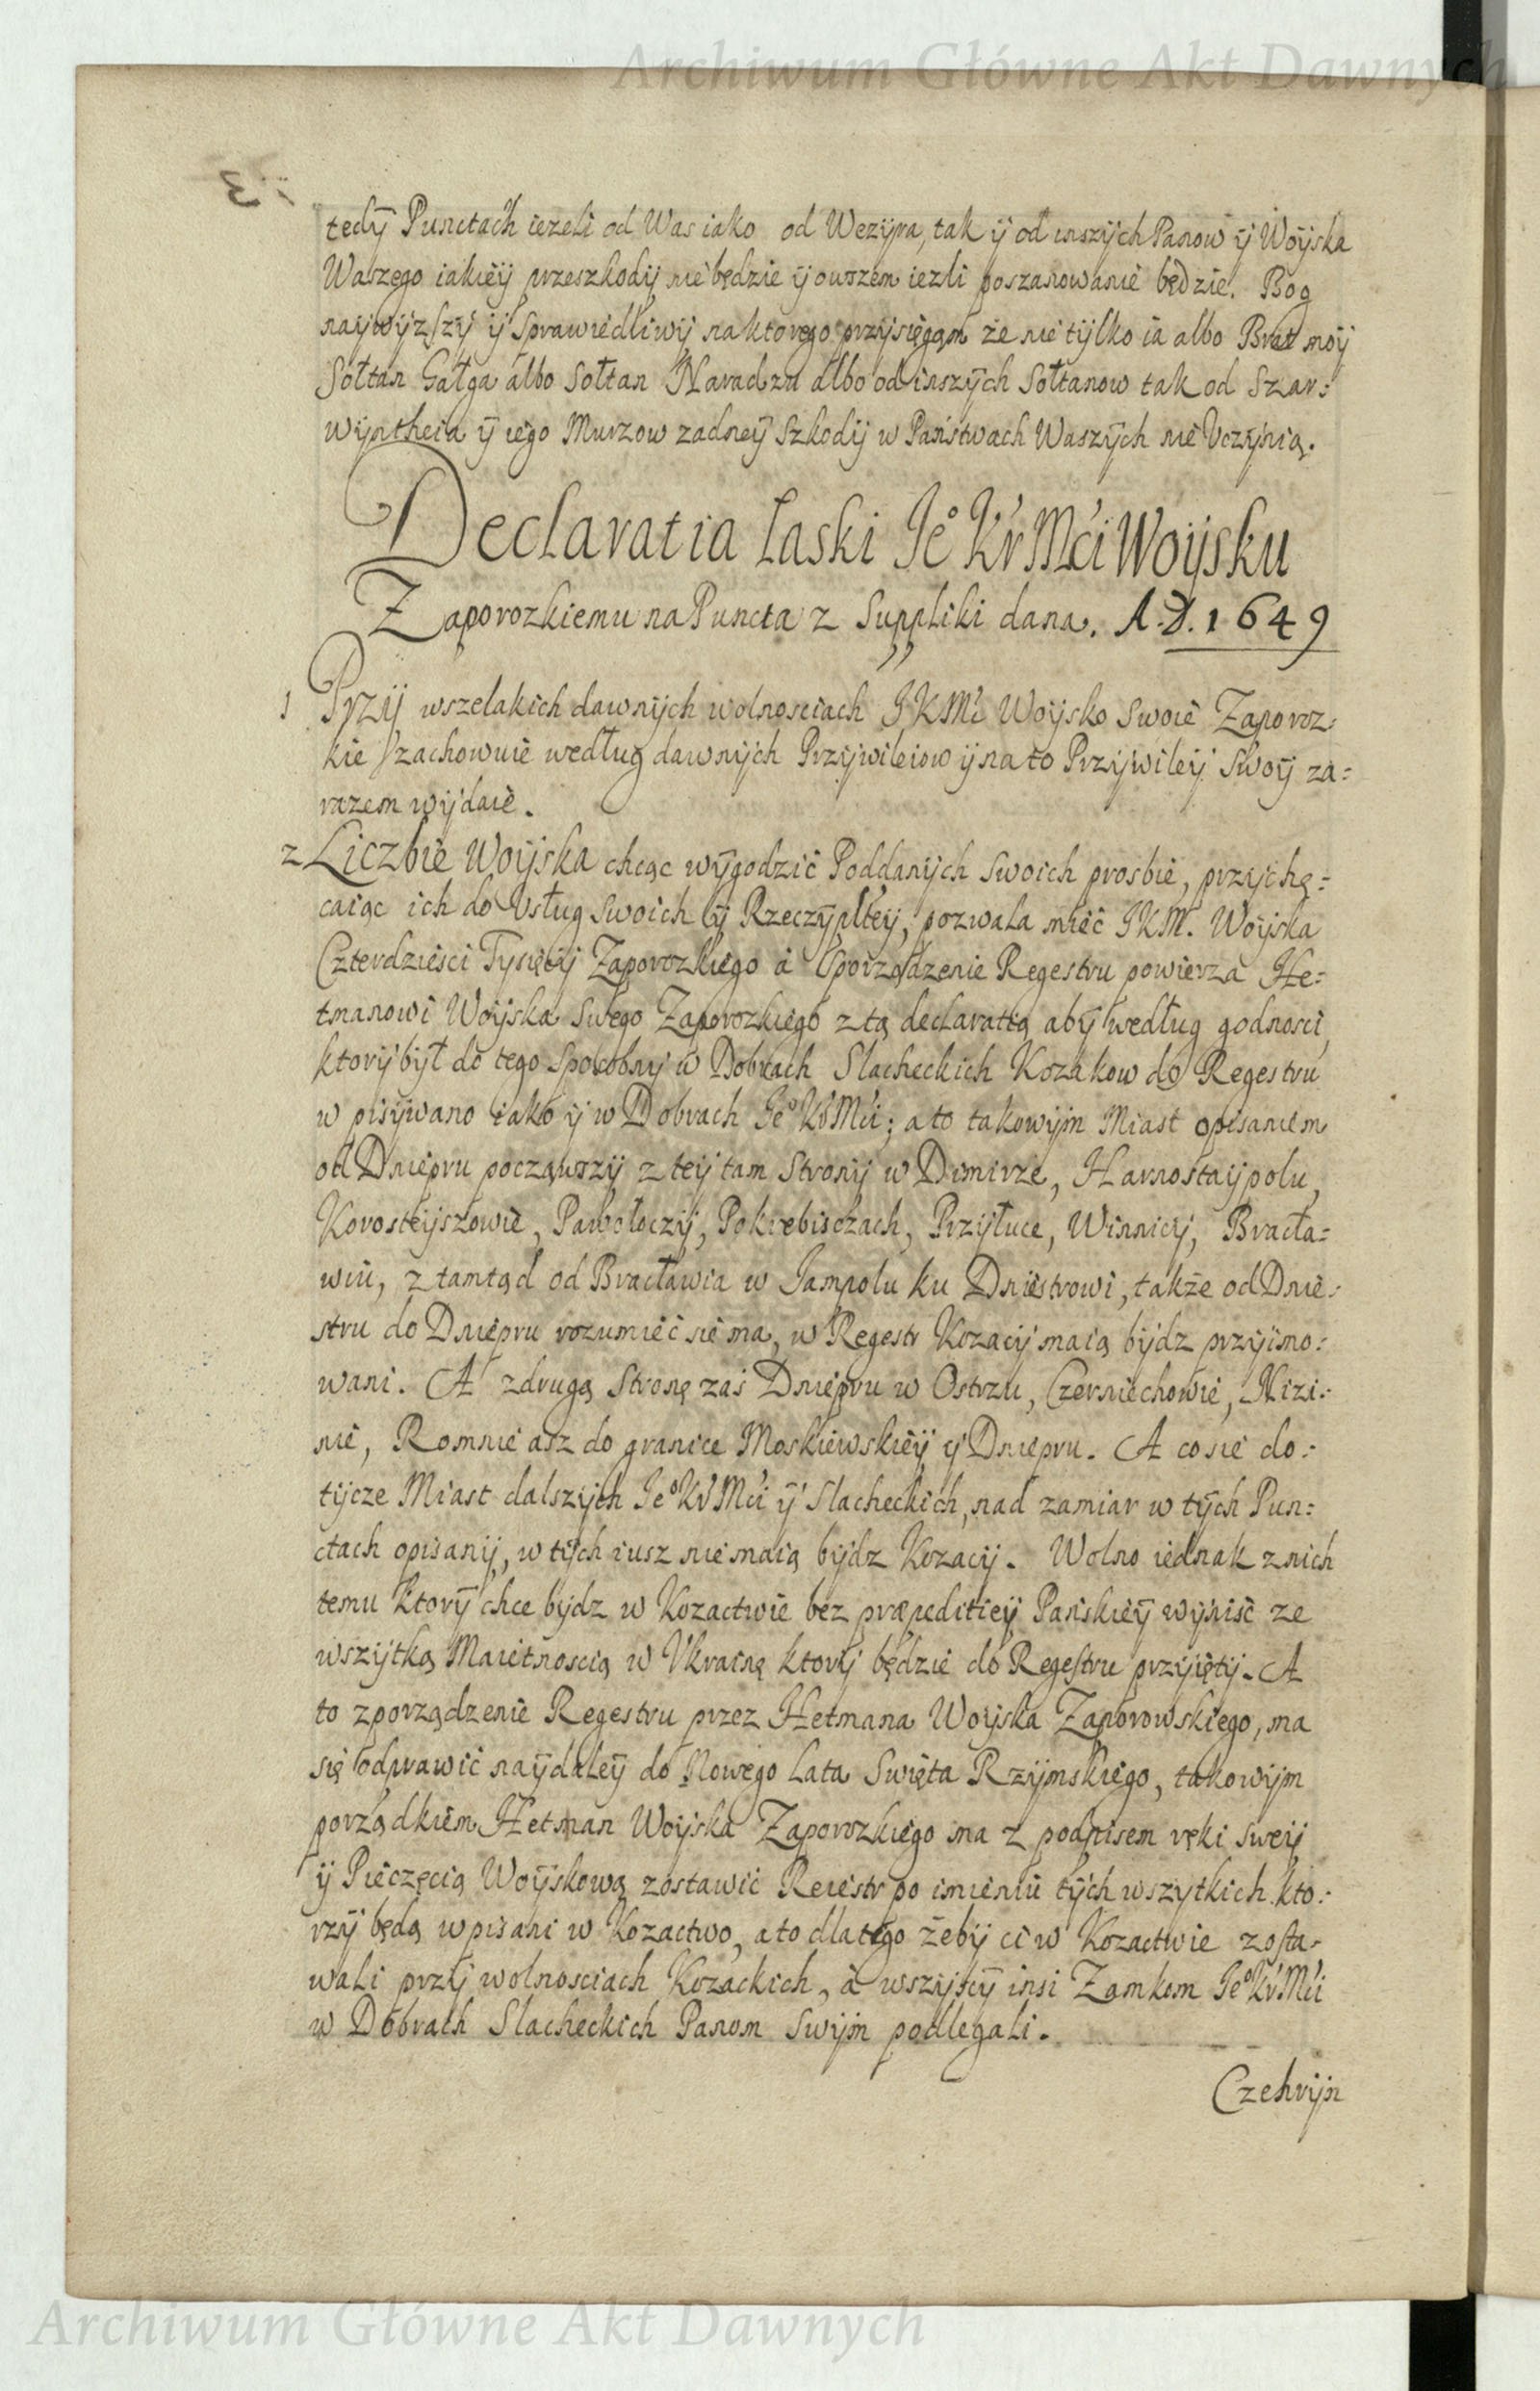 Archiwum Główne Akt Dawnych
tedÿ Punctach ieżeli od Was iako od Wezÿra, tak ÿ od inszÿch Panow ÿ Woÿska
Waszego iakieÿ przeszkodÿ nie będzie ÿ owszem iezli poszanowanie będzie. Bog
naÿwÿzszÿ ÿ Sprawiedliwÿ na ktorego przÿsięgam że nie tÿlko ia albo Brat moÿ
Sołtan Gałga albo Sołtan Naradzu albo od inszÿch Sołtanow tak od Szar:
wÿntheia ÿ iego Murzow zadneÿ Szkodÿ w Państwach Waszÿch nie Vczÿnią.
Declaratia Łaski Je° Kr Mći Woÿsku
Zaporozkiemu na Puncta z Suppliki dana. A.D. 1649
1 Przÿ wszelakich dawnÿch wolnosciach JKMći Woÿsko Swoie Zaporoz:
kie zachowuie według dawnÿch Przÿwileiow ÿ na to Przÿwileÿ Swoÿ za:
razem wÿdaie.
2 Liczbie Woÿska chcąc wÿgodzić Poddanÿch Swoich prosbie, przÿchę:
caiąc ich do Vsług Swoich ÿ Rzeczÿplteÿ, pozwala mieć JKM. Woÿska
Czterdzieści Tysięcÿ Zaporozkiego à Sporządzenie Regestru powierza He:
tmanowi Woÿska Swego Zaporozkiego z tą declaratią abÿ według godności,
ktorÿ bÿł do tego Sposobnÿ w Dobrach Slacheckich Kozakow do Regestru
w pisÿwano iako ÿ w Dobrach Je° Kr Mći; a to takowÿm Miast opisaniem
od Dniepru począwszÿ z teÿ tam Stronÿ w Dimirze, Harnostaÿpolu,
Korosteÿszowie, Pawołoczÿ, Pokrebisczach, Przÿłuce, Winnicÿ, Bracła:
wiu, z tamtąd od Bracławia w Jampolu ku Dniestrowi, także od Dnie:
stru do Dniepru rozumieć sie ma, w Regestr Kozacÿ maią bÿdz przÿimo:
wani. A z drugą Stronę zaś Dniepru w Ostrzu, Czerniechowie, Nizi:
nie, Romnie asz do granice Moskiewskieÿ ÿ Dniepru. A co sie do:
tÿcze Miast dalszÿch Je° Kr Mći ÿ Slacheckich, nad zamiar w tÿch Pun:
ctach opisanÿ, w tÿch iusz nie maią bÿdz Kozacÿ. Wolno iednak z nich
temu ktorÿ chce bÿdz w Kozactwie bez præpeditieÿ Pańskieÿ wÿniść ze
wszÿtką Maiętnoscią w Vkrainę ktorÿ będzie do Regestru przÿiętÿ. A
to zporządzenie Regestru przez Hetmana Woÿska Zaporowskiego, ma
się odprawić naÿdaleÿ do Nowego Lata Swięta Rzÿmskiego, takowÿm
porządkiem Hetman Woÿska Zaporozkiego ma z podpisem ręki sweiÿ
ÿ Pieczęcią Woÿskową zostawić Reiestr po imieniu tÿch wszytkich kto:
rzÿ będą wpisani w Kozactwo, a to dla tego żebÿ ci w Kozactwie zosta:
wali przÿ wolnosciach Kozackich, à wszÿscÿ insi Zamkom Je° Kr Mći
w Dobrach Slacheckich Panom Swÿm podlegali.
Czehrÿn
Archiwum Główne Akt Dawnych